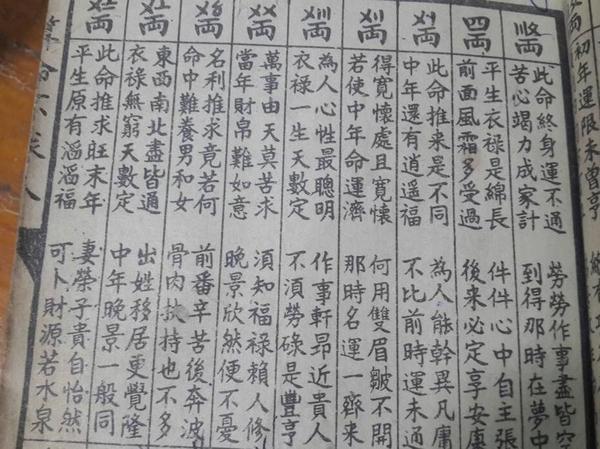 初年運限未曾亨
〣〩両
此命終身運不通 勞勞作事盡皆空
苦心竭力成家計 到得那時在夢中
四両
平生衣祿是綿長 件件心中自主張
前面風霜多受過 後来必定享安康
〤〡両
此命推来是不同 為人能幹異凡庸
中年還有逍遥福 不比前時運未通
〤〢両
得寛懷處且寛懷 何用雙眉皺不開
若使中年命運濟 那時名運一齊来
〤〣両
為人心性最聰明 作事軒昂近貴人
衣祿一生天數定 不須勞碌是豐亨
〤〤両
萬事由天莫苦求 須知福祿賴人修
當年財帛難如意 晚景欣然便不憂
〤〥両
名利推求竟若何 前番辛苦後奔波
命中難養男和女 骨肉扶持也不多
〤〦両
東西南北盡皆通 出姓移居更覺隆
衣祿無窮天數定 中年晚景一般同
〤〧両
此命推求旺末年 妻榮子貴自怡然
平生原有滔滔福 可卜財源若水泉